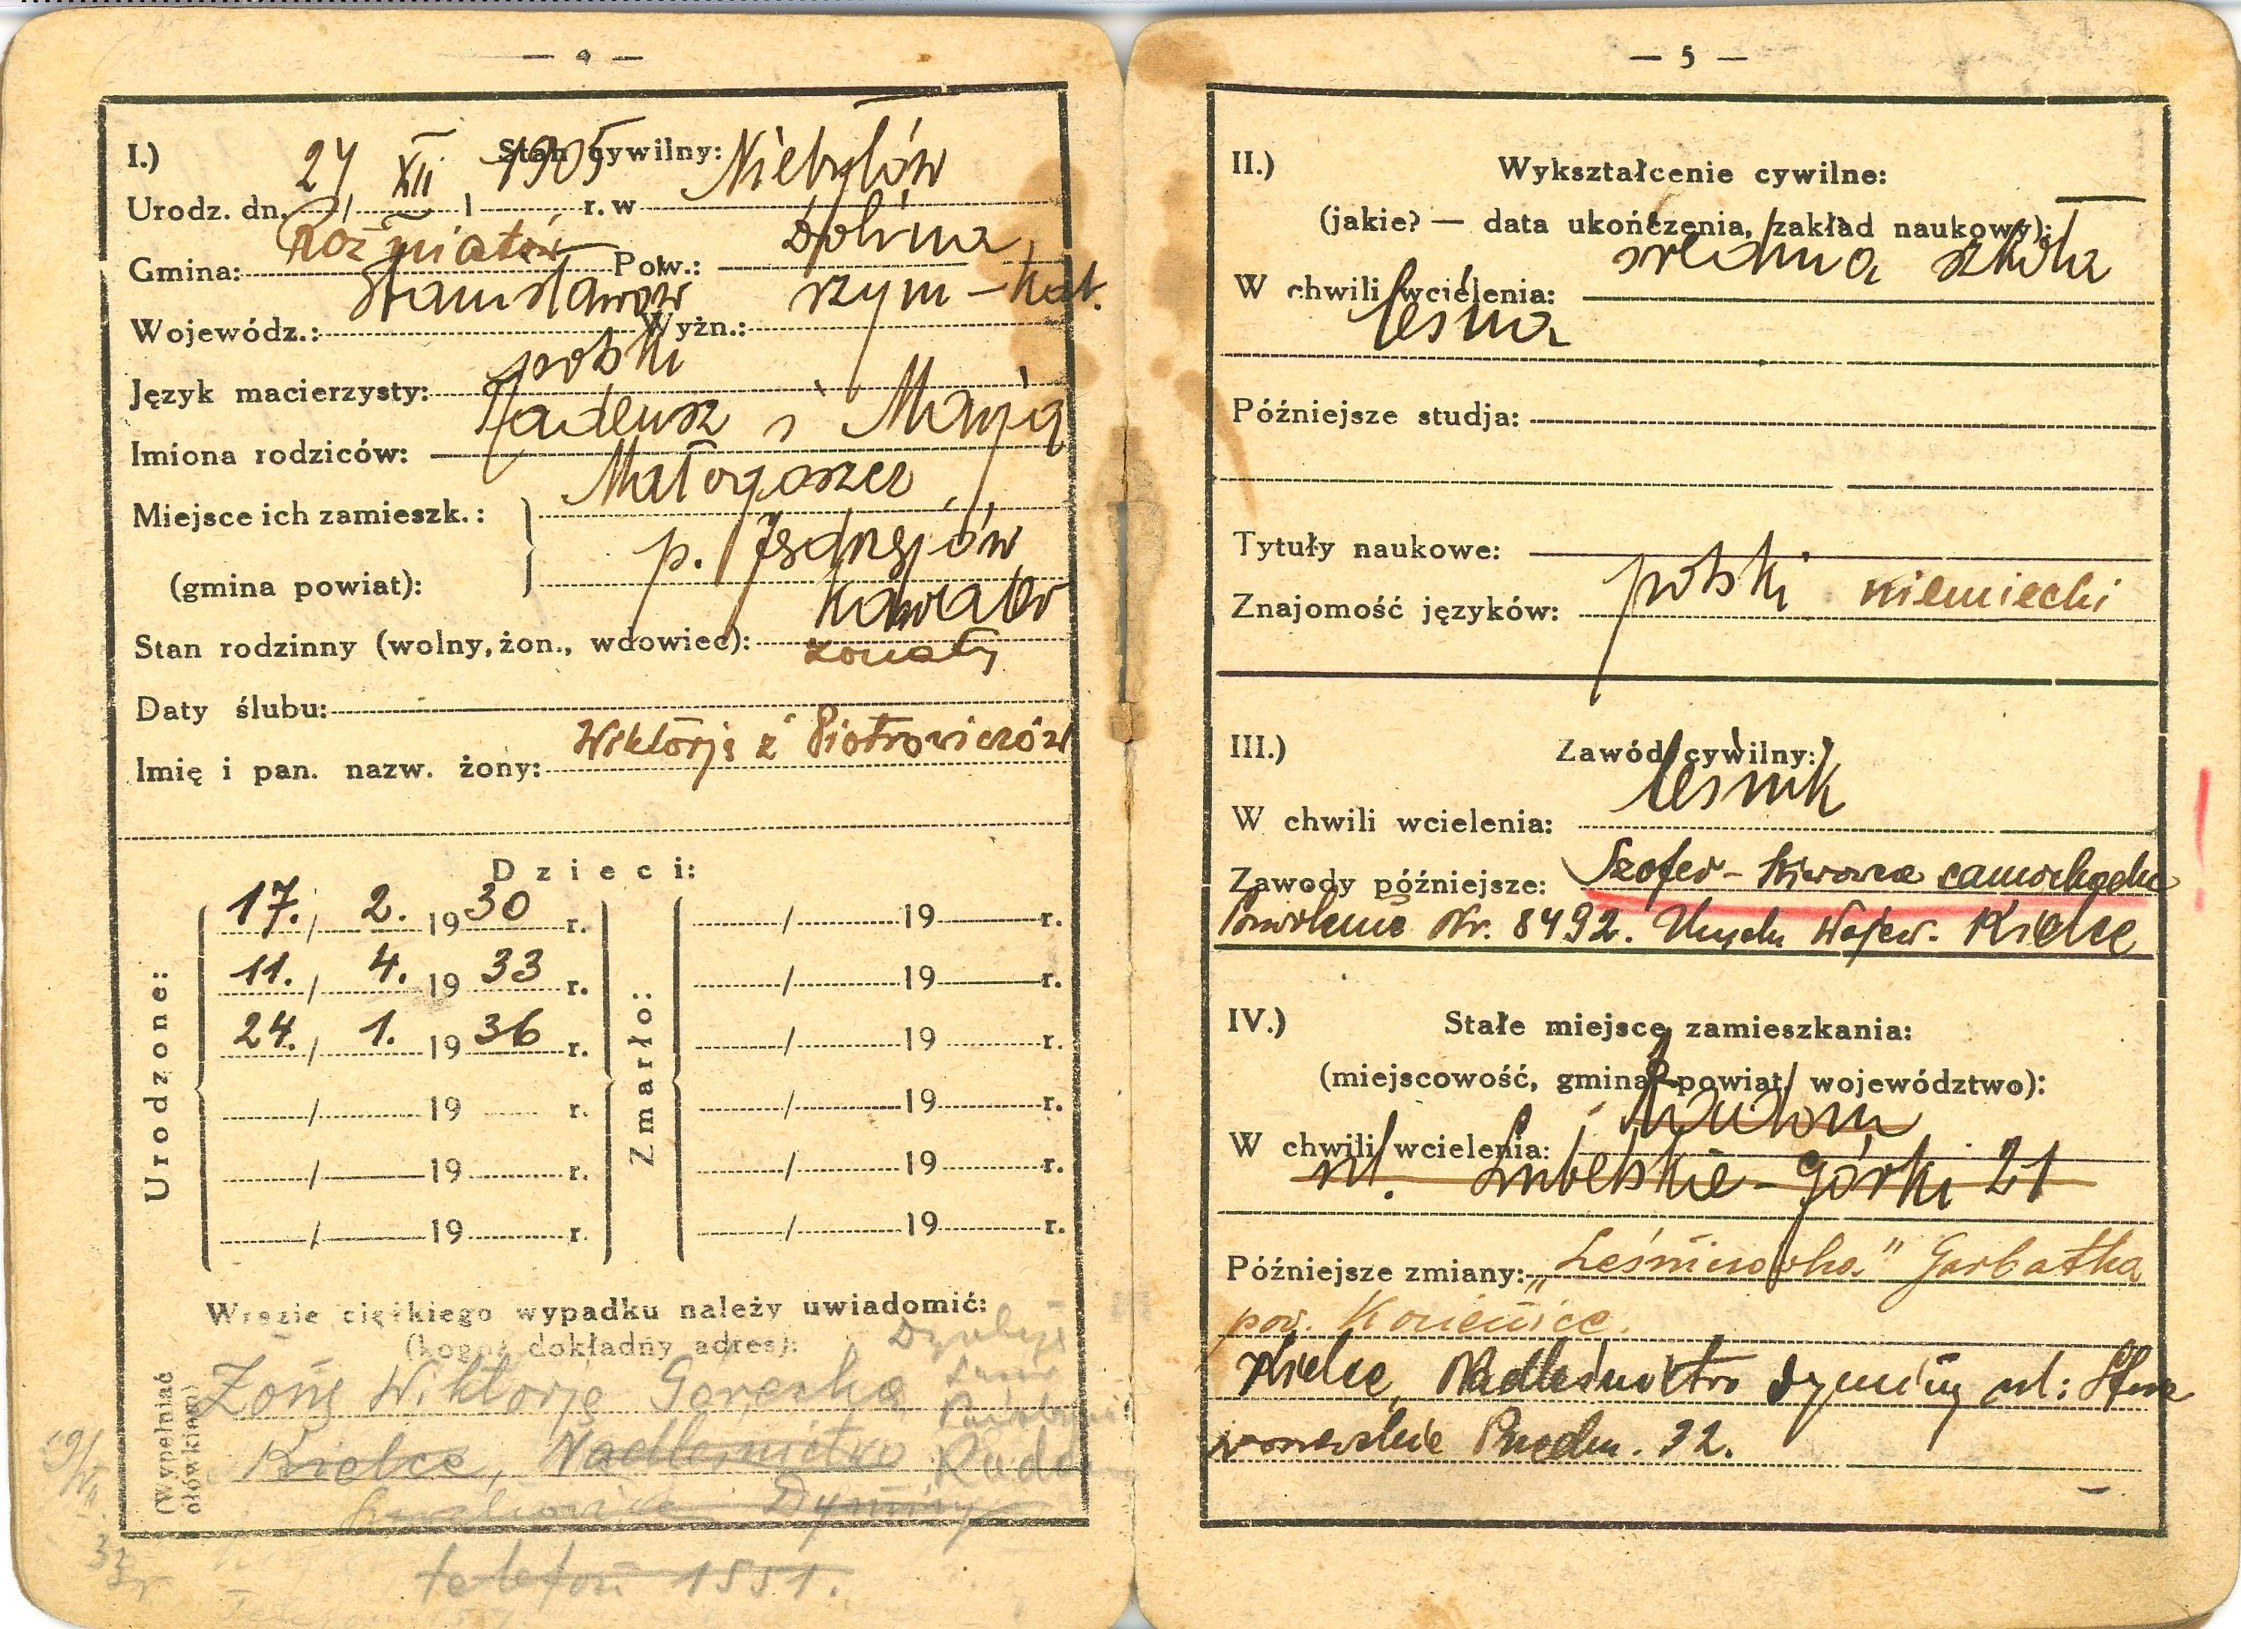 I.) Stan cywilny:
Urodz. dn. 24 / XII 1905 r. w Niebyłów
Gmina: Rożniatów Pow.: Dolina
Wojewódz.: Stanisławów Wyżn.: rzym-kat.
Język macierzysty: polski
Imiona rodziców: Tadeusz i Marja
Miejsce ich zamieszk.: Małogoszcz
(gmina powiat): p. Jędrzejów
kawaler
Stan rodzinny (wolny, żon., wdowiec): żonaty
Daty ślubu:
Imię i pan. nazw. żony: Wiktorja z Piotrowiczów
Dzieci:
Urodzone:
17. / 2. 1930 r.
11. / 4. 1933 r.
24. / 1. 1936 r.
/ 19 r.
/ 19 r.
/ 19 r.
Zmarło:
/ 19 r.
/ 19 r.
/ 19 r.
/ 19 r.
/ 19 r.
/ 19 r.
W razie ciężkiego wypadku należy uwiadomić:
(kogoś dokładny adres):
(Wypełniać
ołówkiem)
Żonę Wiktorję
Kielce, Nadleśnictwo
Dyminy
telefon 1551.
33 r
— 5 —
II.) Wykształcenie cywilne:
(jakie? — data ukończenia, zakład naukowy):
W chwili wcielenia: średnia szkoła
leśna
Późniejsze studja:
Tytuły naukowe:
Znajomość języków: polski niemiecki
III.) Zawód cywilny:
W chwili wcielenia: leśnik
Zawody późniejsze: Szofer - kierowca samochodu
Pozwolenie Nr. 8492. Urzędu Wojew. Kielce
IV.) Stałe miejsce zamieszkania:
(miejscowość, gmina, powiat, województwo):
W chwili wcielenia: Radom
ul. Lubelskie - Górki 21
Późniejsze zmiany: „Leśniczówka" Garbatka
pow. Kozienice.
Kielce, Nadleśnictwo Dyminy ul:
Przedm. 32.